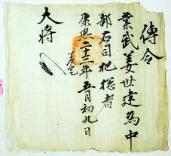 傳令
業武姜世建爲中
部右司把摠者
康熙二十三年五月初九日
大將